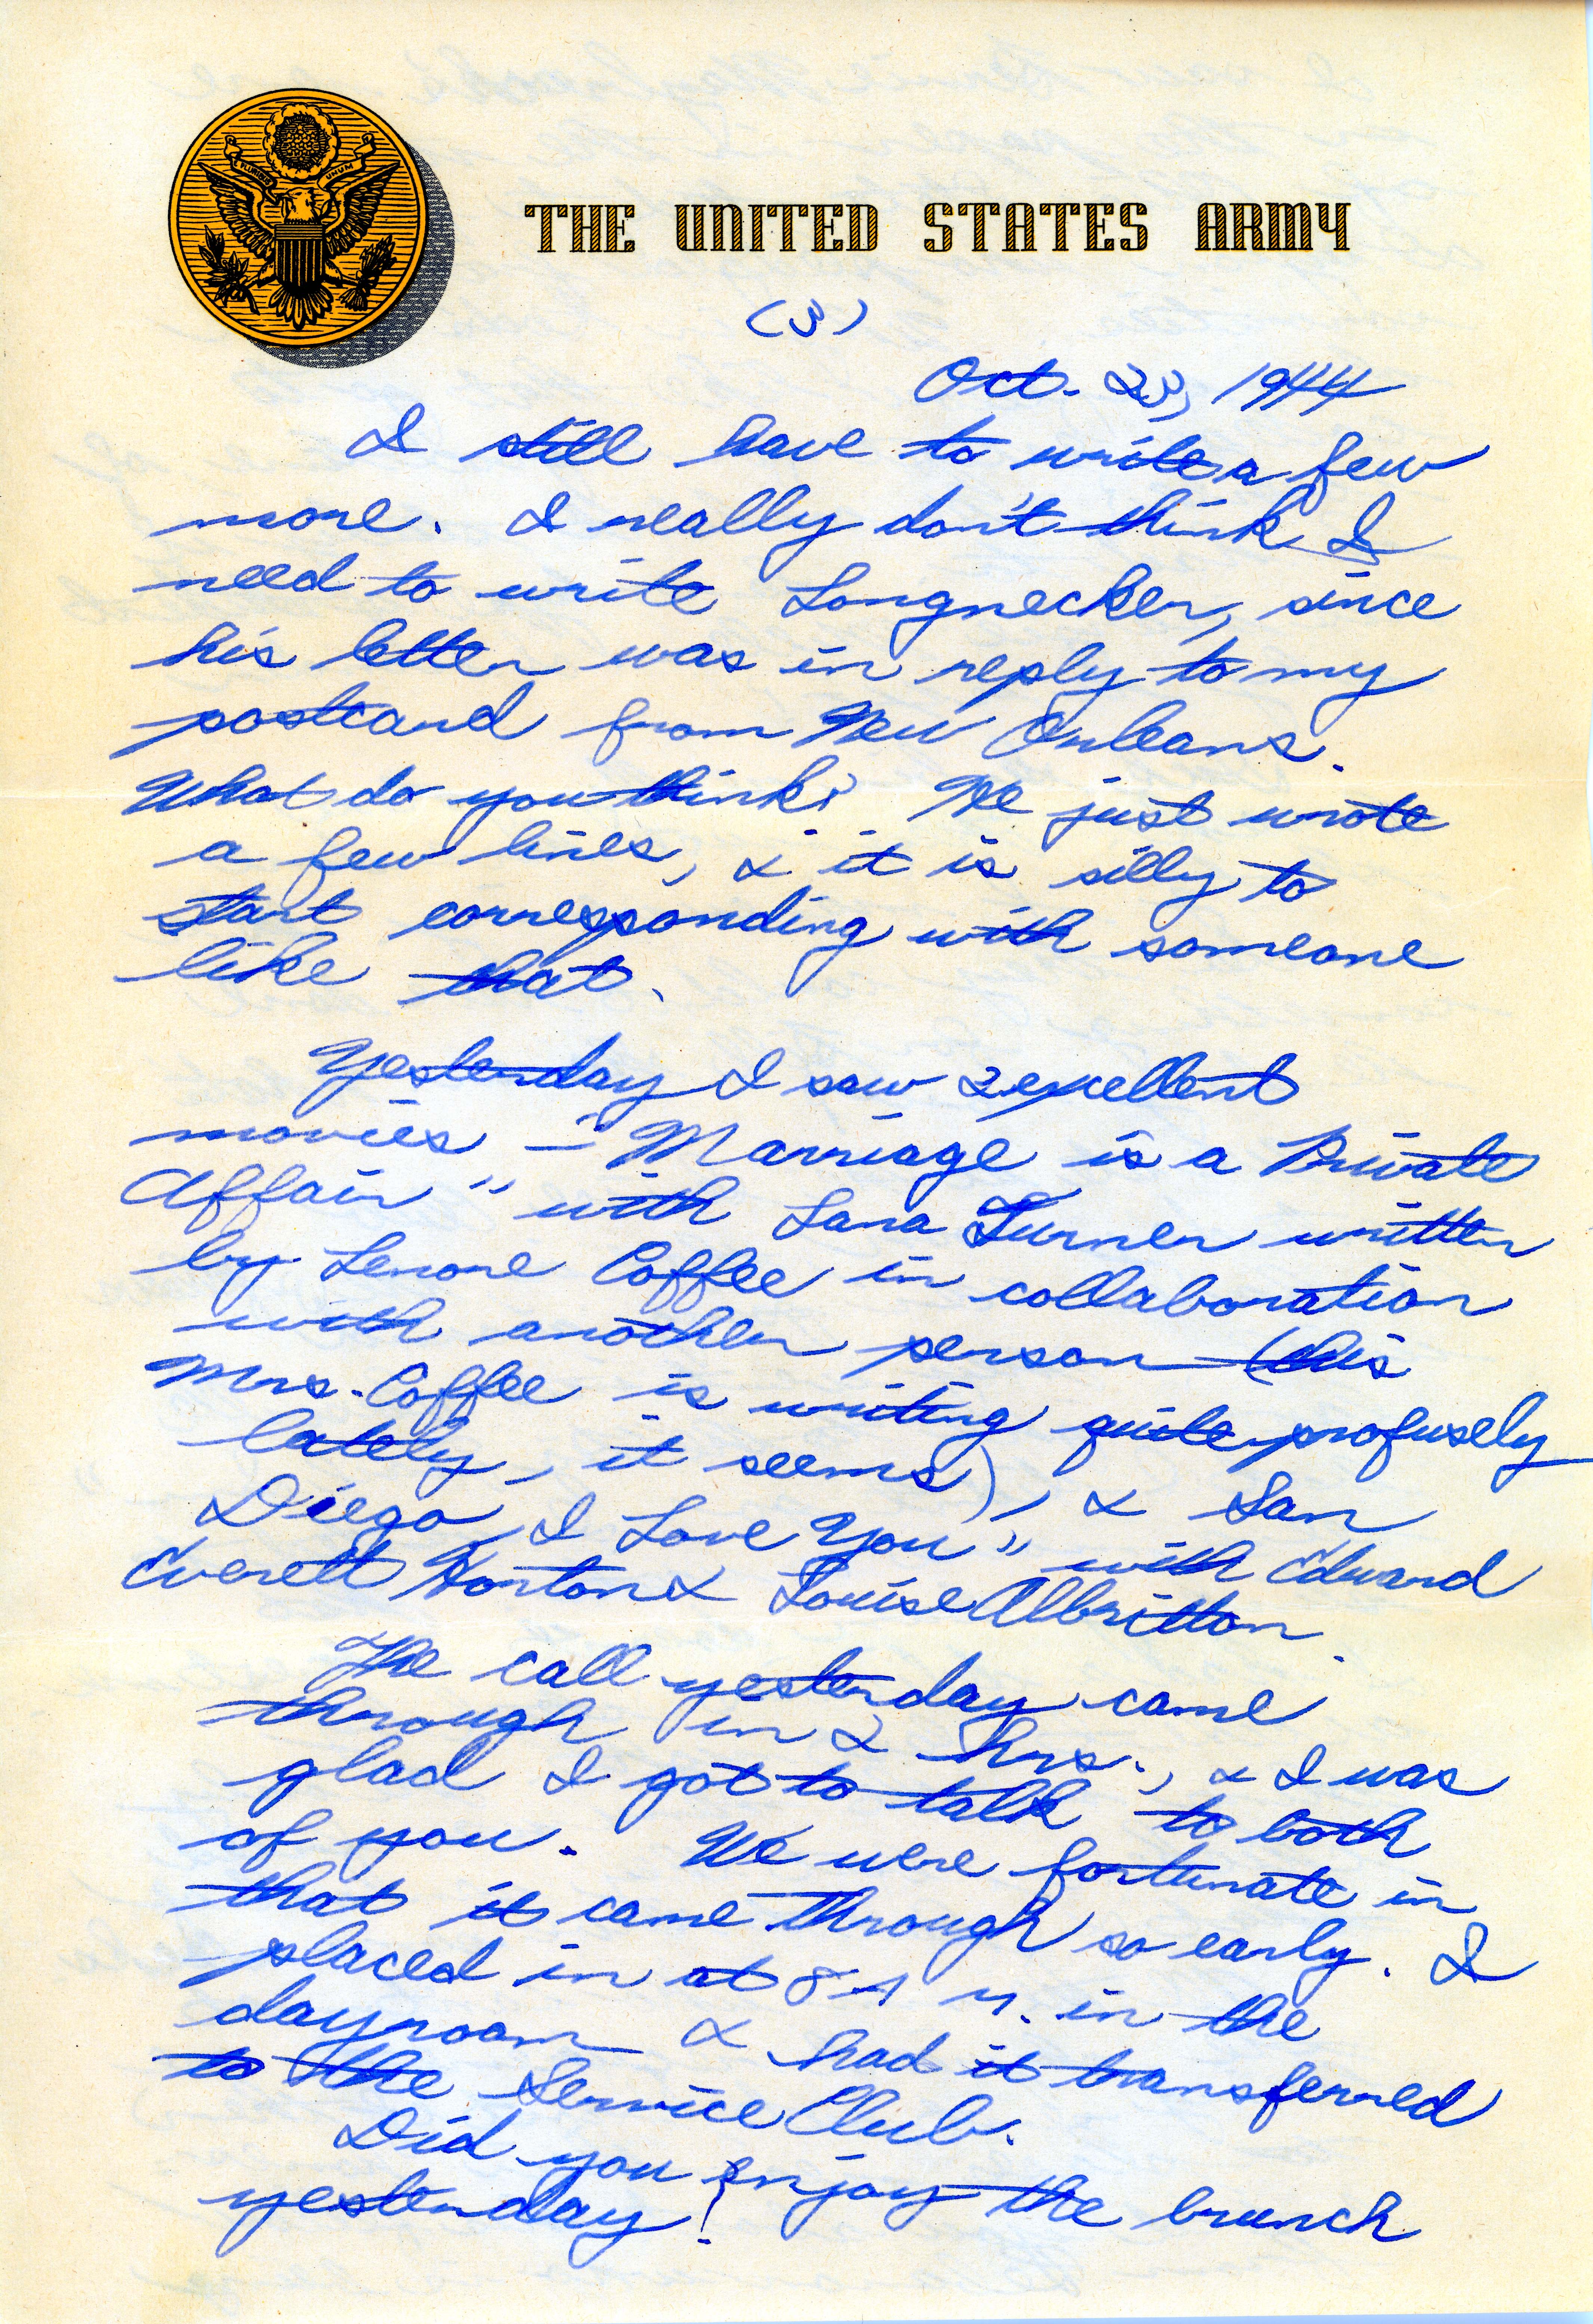 E PLURIBUS UNUM
THE UNITED STATES ARMY
(3)
Oct. 23, 1944
I still have to write a few
more. I really don't think I
need to write Longnecker, since
his letter was in reply to my
postcard from New Orleans.
What do you think? He just wrote
a few lines, & it is silly to
start corresponding with someone
like that.
Yesterday I saw 2 excellent
movies – "Marriage is a Private
Affair" with Lana Turner written
by Lenore Coffee in collaboration
with another person (this
Mrs. Coffee is writing quite profusely
lately, it seems), & San
Diego, I Love You" with Edward
Everett Horton & Louise Albritton.
The call yesterday came
through in 2 hrs., & I was
glad I got to talk to both
of you. We were fortunate in
that it came through so early. I
placed in at 8 A M. in the
dayroom & had it transferred
to the Service Club.
Did you enjoy the brunch
yesterday?